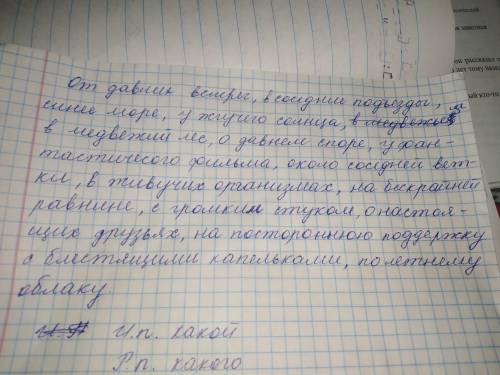 От давних встреч, в соседние подъезды, в
синее море, у жгучего солнца,
в медвежий лес, о давнем споре, у фан-
тастичесого фильма, около соседней вет-
ки, в живучих организмах, на бескрайней
равнине, с громким стуком, о настоя-
щих друзьях, на постороннюю поддержку
с блестящими капельками, по летнему
облаку
И.п. какой
Р.п. какого